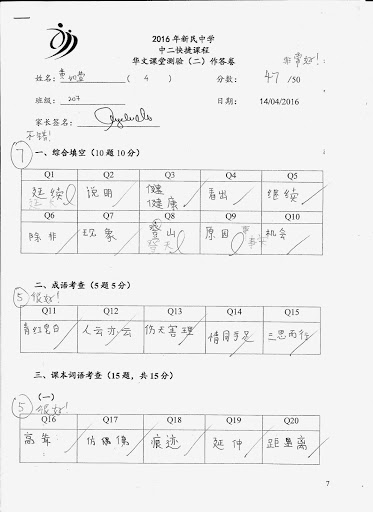 2016 年新民中学
中二快捷课程
华文课堂测验（二）作答卷
非常好！
姓名： ( 4 )
分数： 47 /50
班级： 207
日期： 14/04/2016
家长签名：
不错！
7 一、综合填空（10 题 10 分）
Q1 Q2 Q3 Q4 Q5
延续 说明 健康 看出 继续
Q6 Q7 Q8 Q9 Q10
除非 现象 登山 原因 机会
二、成语考查（5 题 5 分）
5 很好！
Q11 Q12 Q13 Q14 Q15
青红皂白 人云亦云 伤天害理 情同手足 三思而行
三、课本词语考查（15 题，共 15 分）
（一）
5 很好！
Q16 Q17 Q18 Q19 Q20
高耸 偶 痕迹 延伸 距离
7